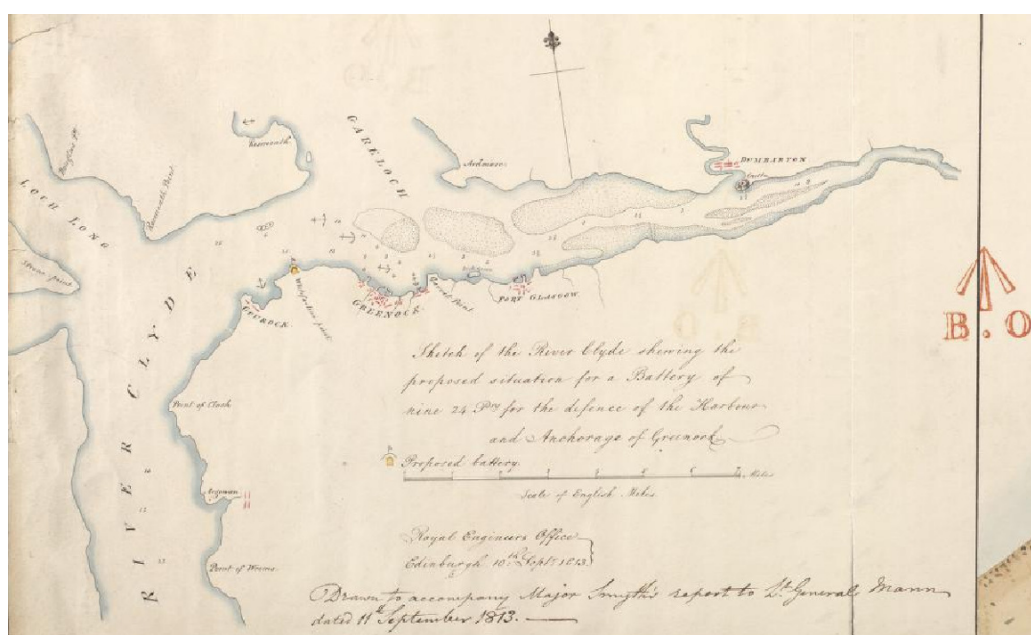 LOCH LONG
Roseneath
Roseneath Point
GARELOCH
Ardmore
DUMBARTON
Castle
Strone point
RIVER CLYDE
GOUROCK
Whiteforeland point
GREENOCK
Garvel Point
PORT GLASGOW
Point of Cloch
Point of Wemss
B.O
Sketch of the River Clyde shewing the
proposed situation for a Battery of
nine 24 Pdrs for the defence of the Harbour
and Anchorage of Greenock
Proposed battery.
Miles
Scale of English Miles
Royal Engineers Office
Edinburgh 10th Septr. 1813
Drawn to accompany Major Smyth's report to Lt. General Mann
dated 11th September 1813.